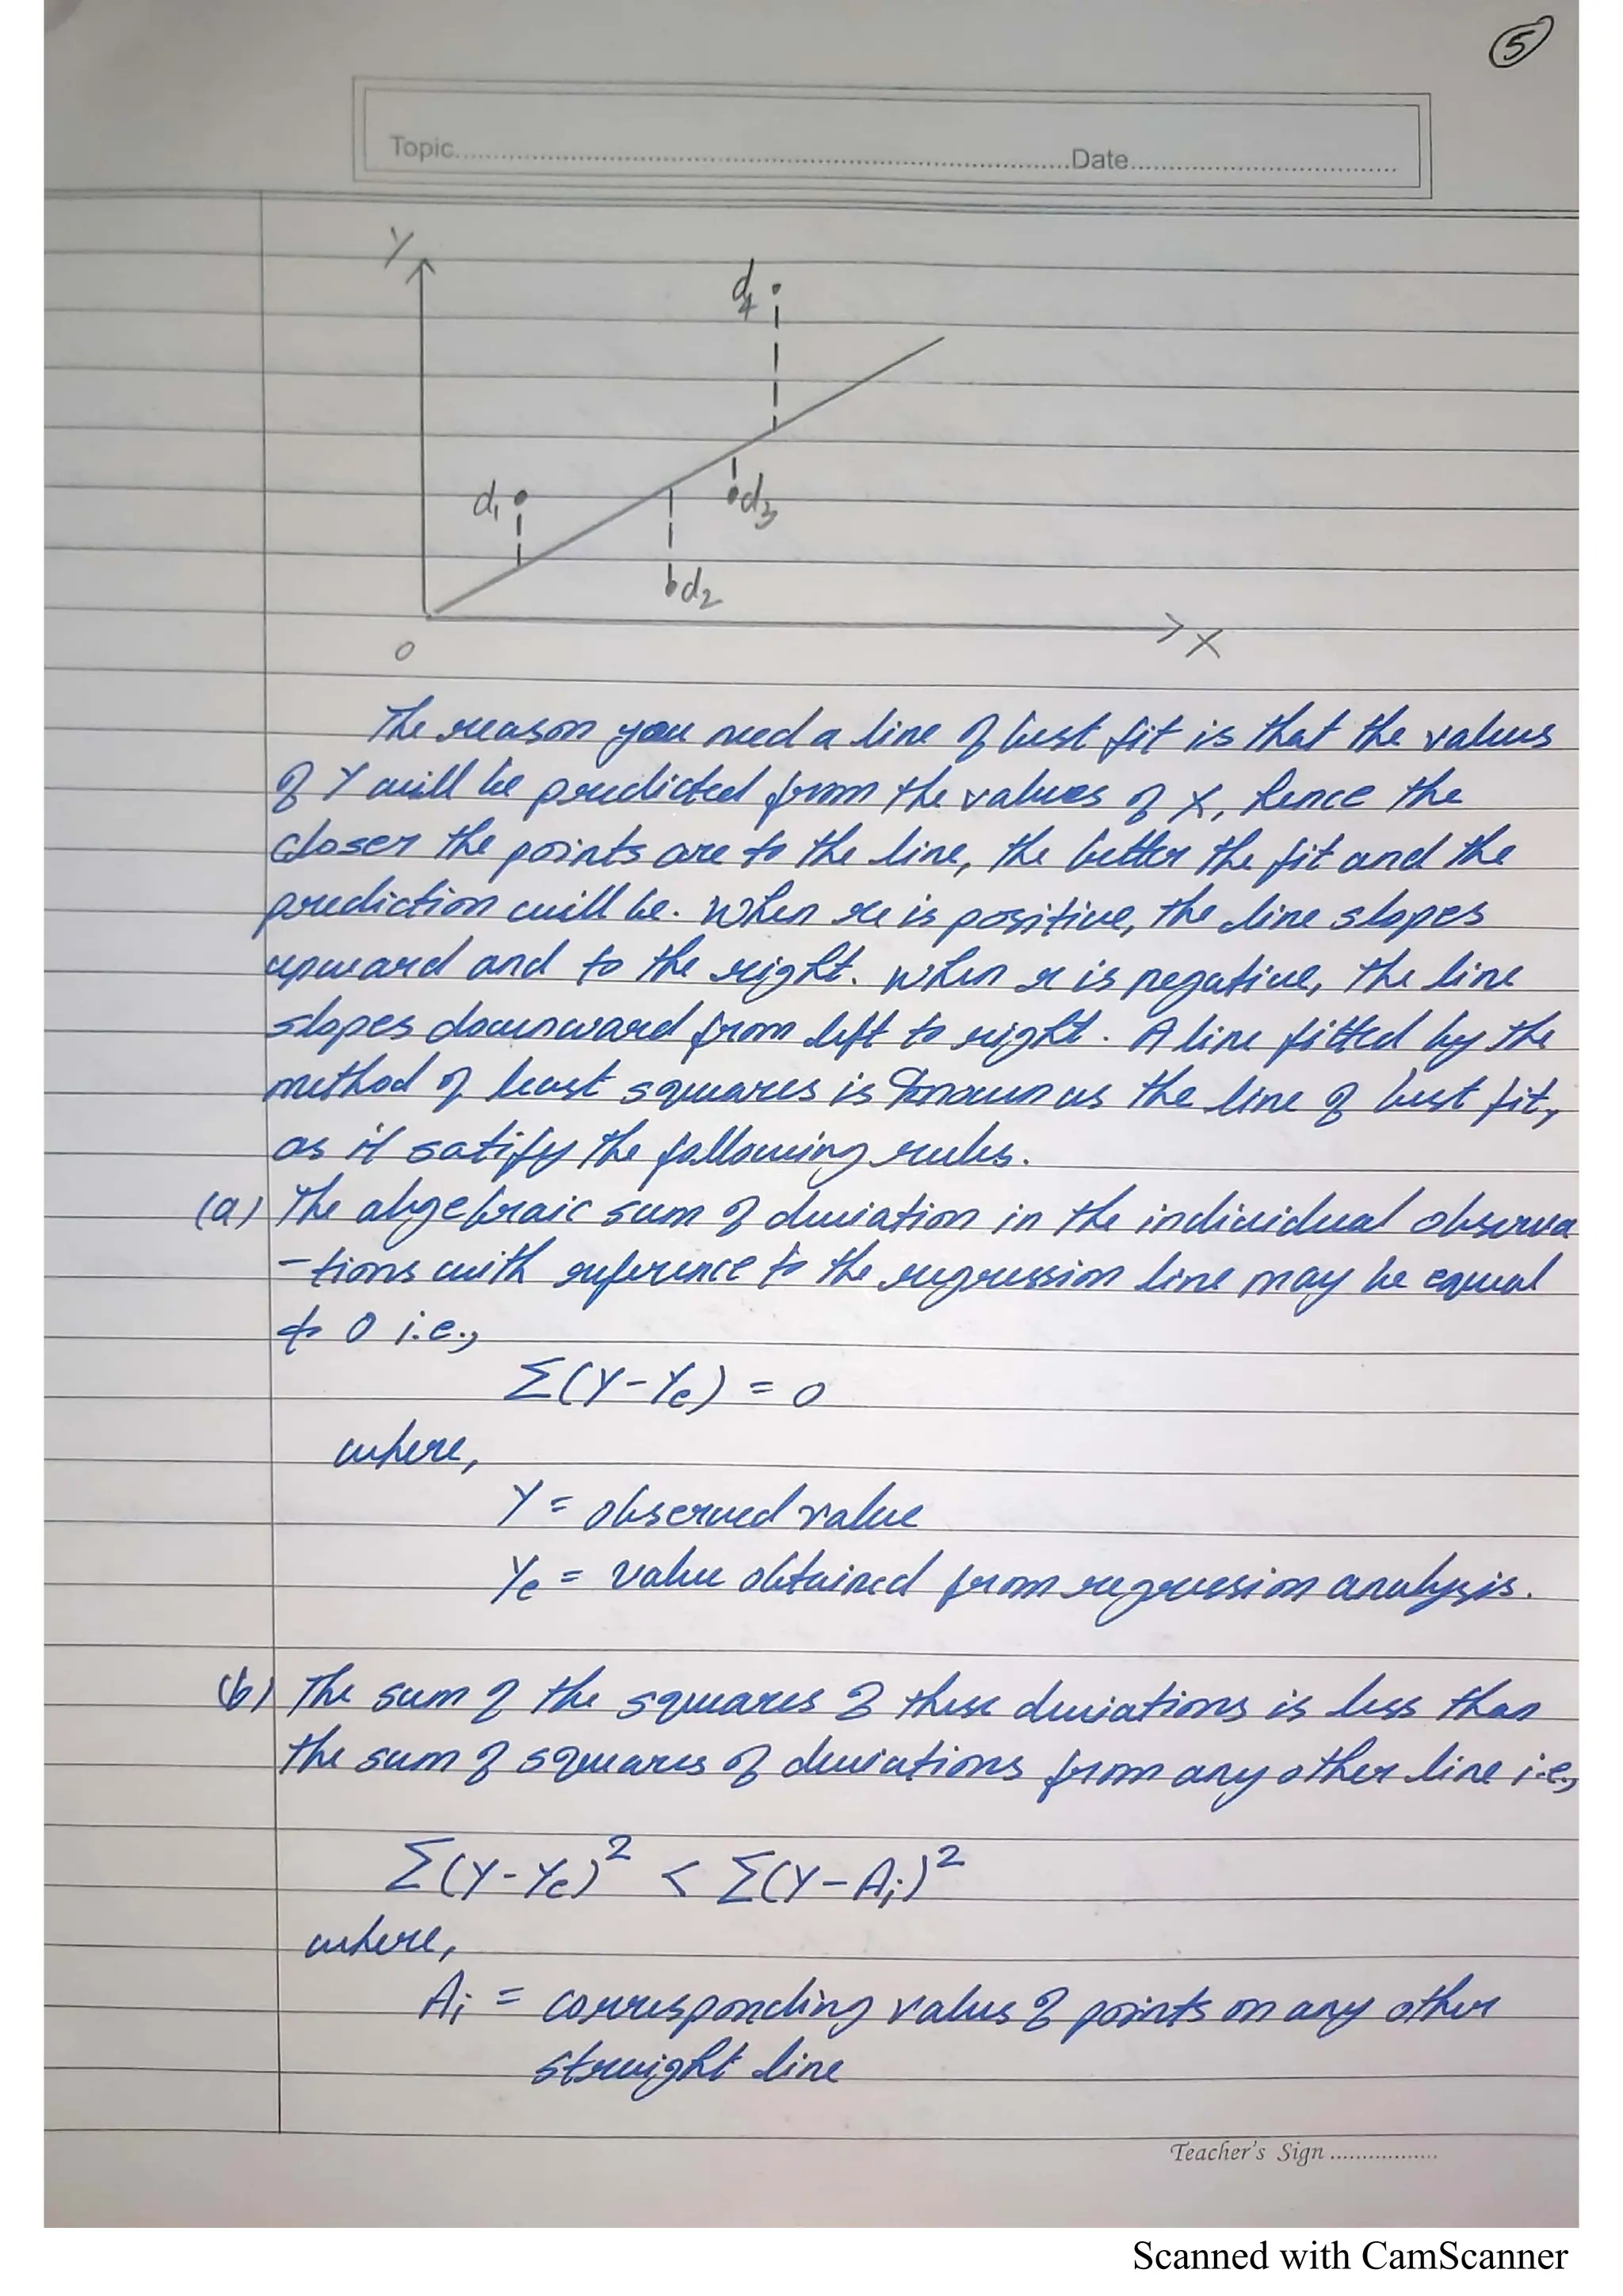 5
Topic..........Date..........
Y
d4
d1
d3
d2
0
X
The reason you need a line of best fit is that the values
of Y will be predicted from the values of X, hence the
closer the points are to the line, the better the fit and the
prediction will be. When r is positive, the line slopes
upward and to the right. When r is negative, the line
slopes downward from left to right. A line fitted by the
method of least squares is known as the line of best fit,
as it satify the following rules.
(a) The algebraic sum of deviation in the individual observa
-tions with reference to the regression line may be equal
to 0 i.e.,
Σ(Y-Ye) = 0
where,
Y = observed value
Ye = value obtained from regression analysis.
(b) The sum of the squares of these deviations is less than
the sum of squares of deviations from any other line i.e.,
Σ(Y-Ye)² < Σ(Y-Ai)²
where,
Ai = corresponding values of points on any other
straight line
Teacher's Sign..........
Scanned with CamScanner